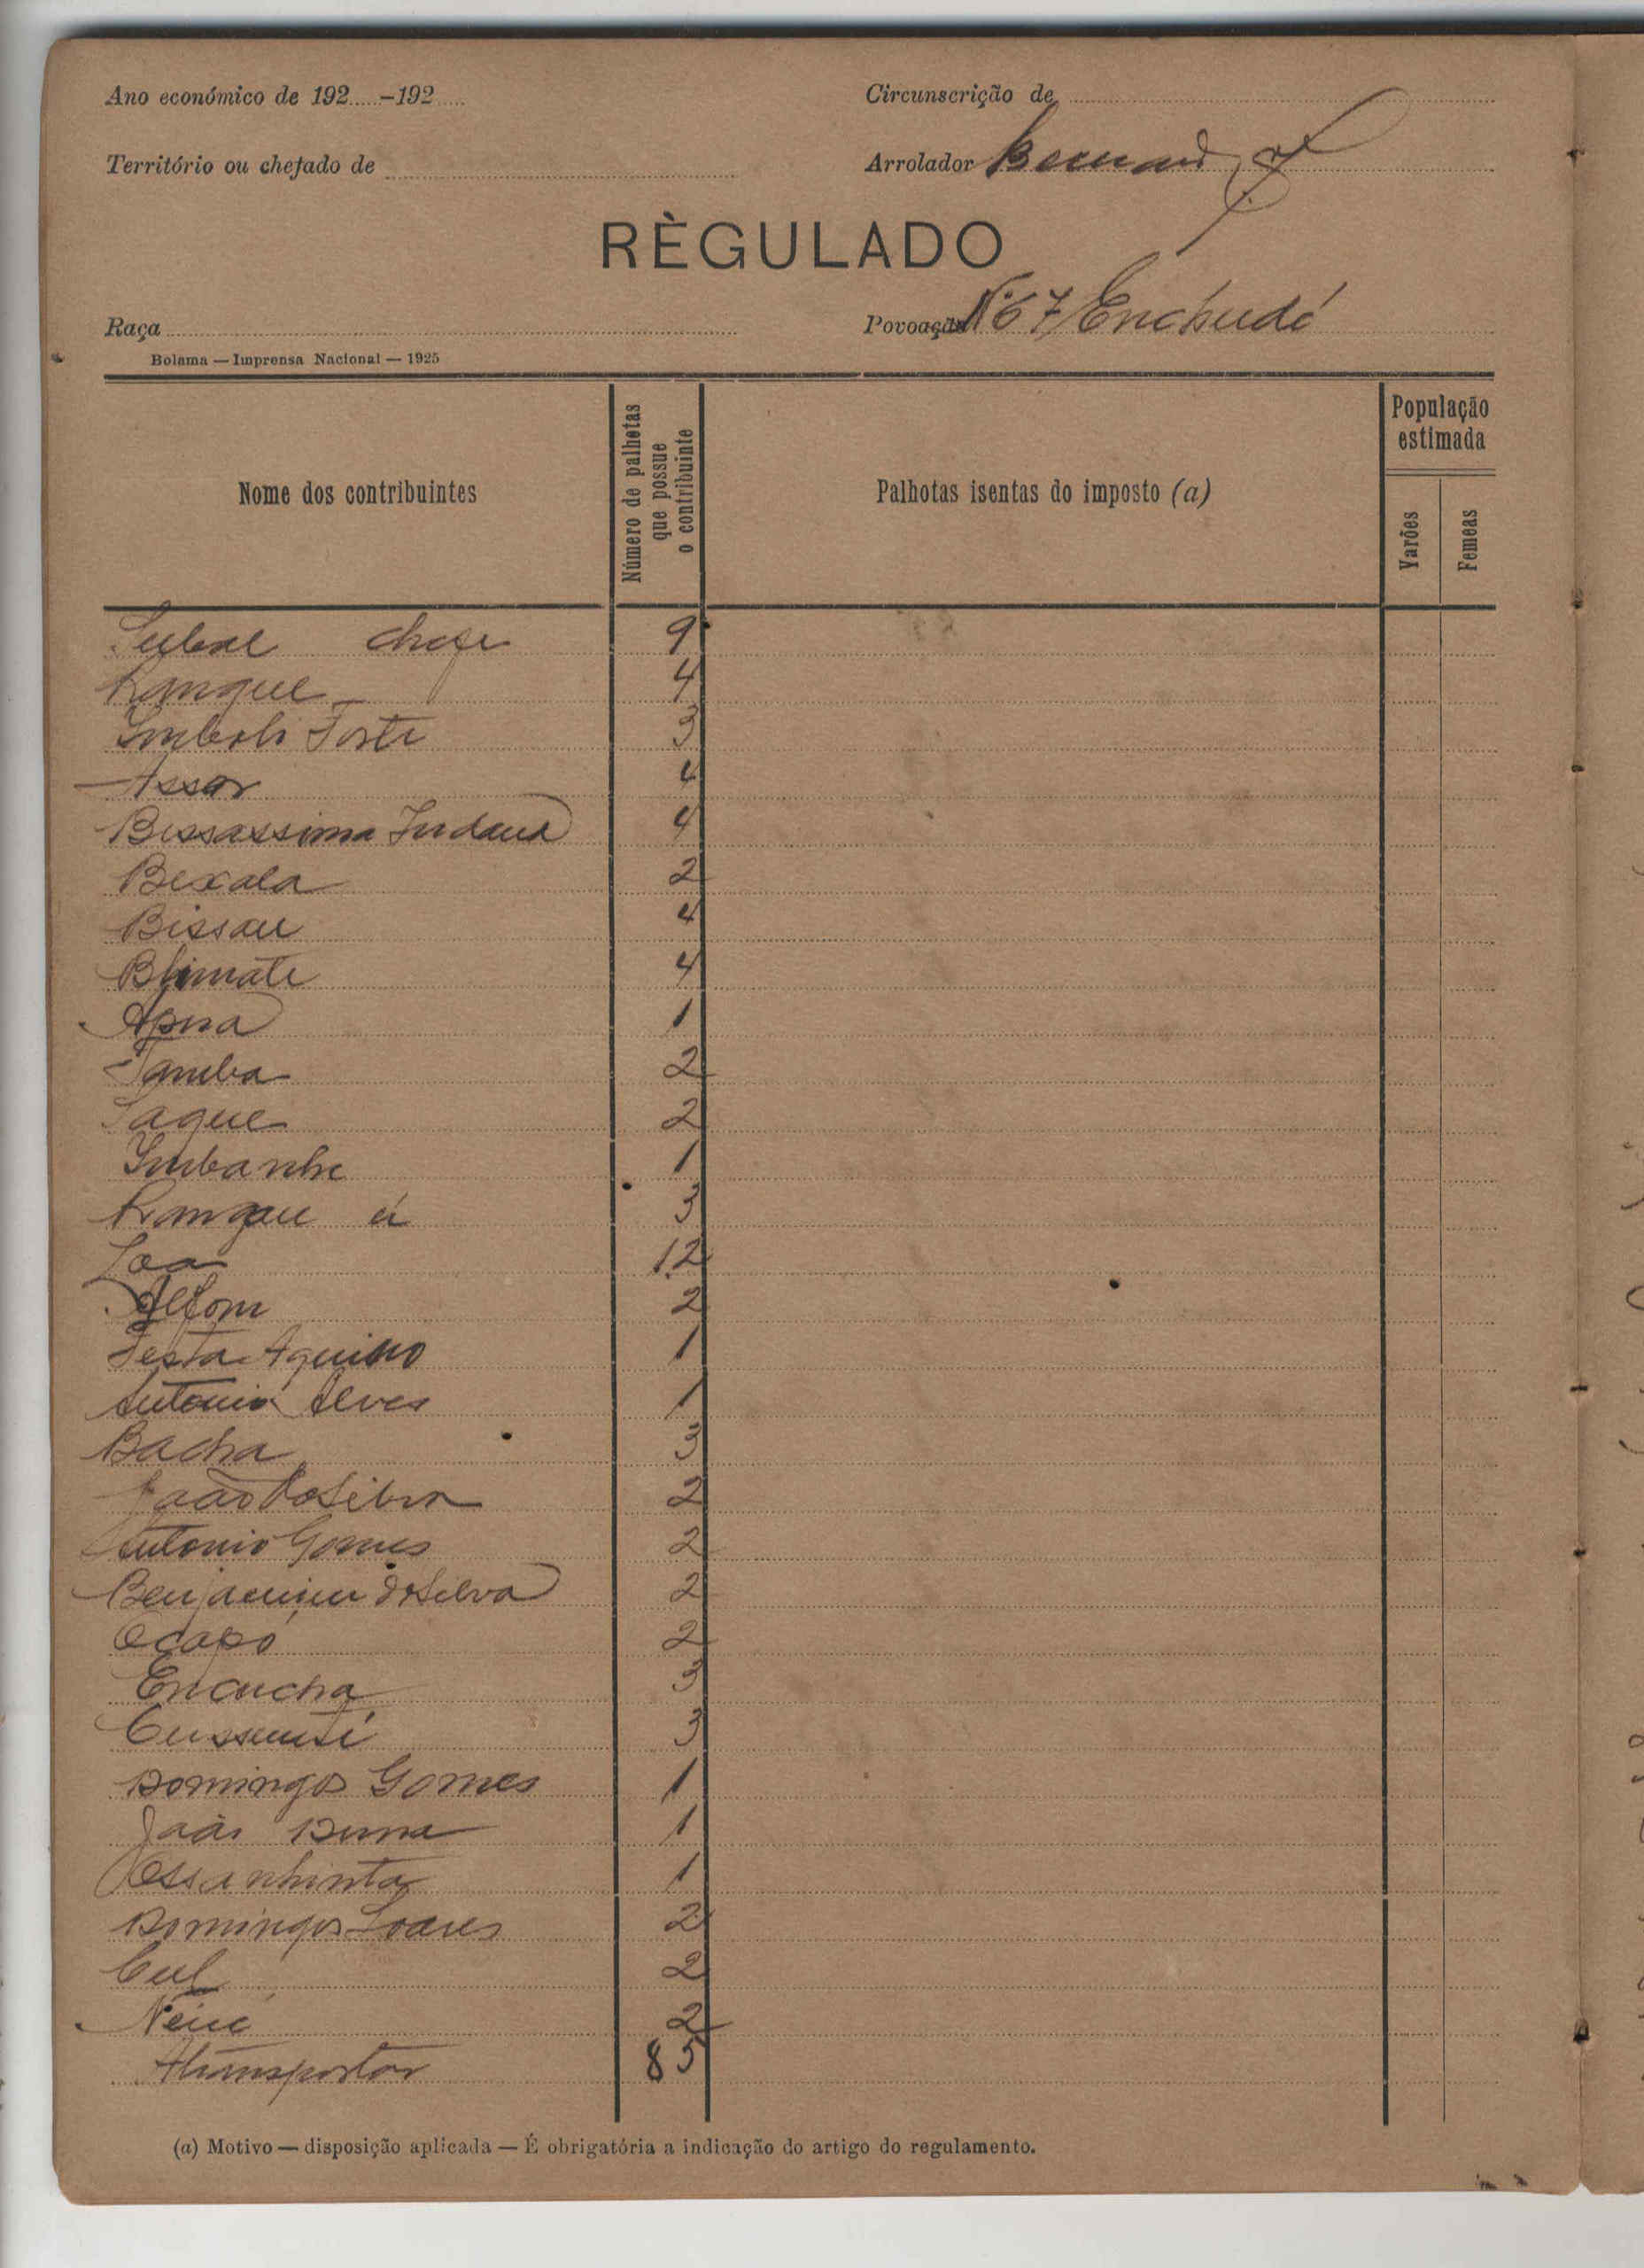 Ano económico de 192.....–192.....
Circunscrição de
Território ou chefado de
Arrolador
RÈGULADO
Raça
Povoação Nº 67 Enchudé
Bolama — Imprensa Nacional — 1925
Nome dos contribuintes
Número de palhotas que possue o contribuinte
Palhotas isentas do imposto (a)
População estimada
Varões
Femeas
chefe 9
Kanque 4
3
Assar 4
Bissassima 4
Bexala 2
Bissau 4
4
1
Tamba 2
2
Imbanhe 1
Kanque 3
Loa 12
2
Testa Aquino 1
Antonio Alves 1
Bacha 3
João da Silva 2
Antonio Gomes 2
Benjamim da Silva 2
Ocapó 2
Encucha 3
3
Domingos Gomes 1
1
Ossanhinta 1
Domingos Soares 2
Cul 2
2
A transportar 85
(a) Motivo — disposição aplicada — É obrigatória a indicação do artigo do regulamento.